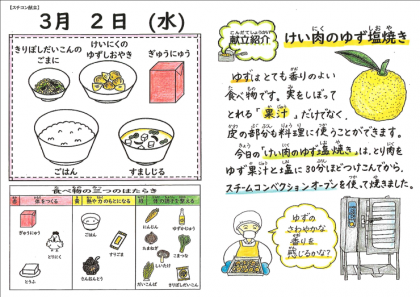 【スチコン献立】
3月 2日 (水)
きりぼしだいこんの
ごまに
けいにくの
ゆずしおやき
ぎゅうにゅう
ごはん
すましじる
食べ物の三つのはたらき
赤 体をつくる
黄 熱や力のもとになる
緑 体の調子を整える
ぎゅうにゅう
とりにく
とうふ
ごはん
すりごま
さんおんとう
にんじん
ゆずかじゅう
たまねぎ
こまつな
しいたけ
だいこんば
きりぼしだいこん
こんだてしょうかい
献立紹介
けい肉のゆず塩焼き
ゆずはとても香りのよい
食べ物です。実をしぼって
とれる「果汁」だけでなく、
皮の部分も料理に使うことができます。
今日の「けい肉のゆず塩焼き」は、とり肉を
ゆず果汁と塩に30分ほどつけこんでから、
スチームコンベクションオーブンを使って焼きました。
ゆずの
さわやかな
香りを
感じるかな?